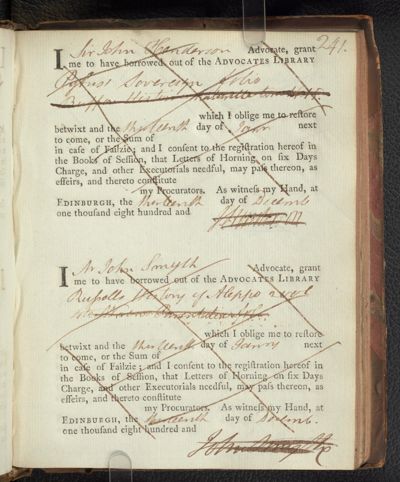 241.
I Sir John Henderson Advocate, grant
me to have borrowed out of the ADVOCATES LIBRARY
Sovereign folio
which I oblige me to restore
betwixt and the thirteenth day of Janr next
to come, or the Sum of
in case of Failzie; and I consent to the registration hereof in
the Books of Session, that Letters of Horning on six Days
Charge, and other Executorials needful, may pass thereon, as
effeirs, and thereto constitute
my Procurators. As witness my Hand, at
EDINBURGH, the thirteenth day of Decemb
one thousand eight hundred and
I Mr John Smyth Advocate, grant
me to have borrowed out of the ADVOCATES LIBRARY
Russells History of Aleppo 2 vol
which I oblige me to restore
betwixt and the thirteenth day of Janry next
to come, or the Sum of
in case of Failzie; and I consent to the registration hereof in
the Books of Session, that Letters of Horning on six Days
Charge, and other Executorials needful, may pass thereon, as
effeirs, and thereto constitute
my Procurators. As witness my Hand, at
EDINBURGH, the thirteenth day of Decemb.
one thousand eight hundred and
John Smyth